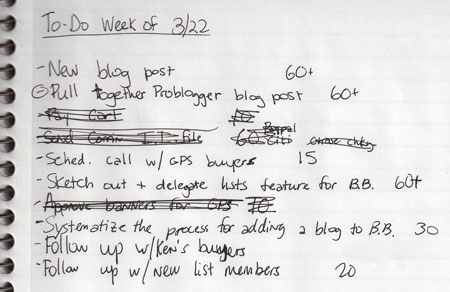 To-Do Week of 3/22
- New blog post 60+
Pull together Problogger blog post 60+
- Pay Carl 10
Send Comm 60 Paypal Citi Chase chkg
- Sched. call w/ GPS buyers 15
- Sketch out + delegate lists feature for B.B. 60+
- Approve banners for GPS 10
- Systematize the process for adding a blog to B.B. 30
- Follow up w/Ken's buyers
- Follow up w/ new list members 20